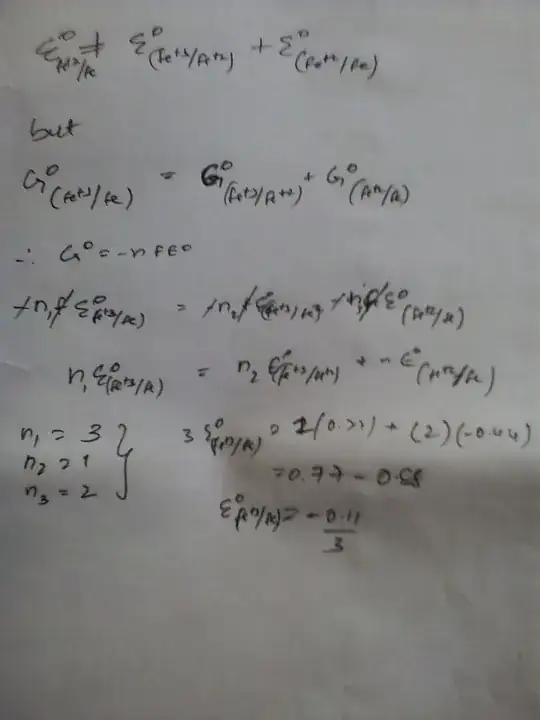 ε⁰(Fe⁺³/Fe) ≠ ε⁰(Fe⁺³/Fe⁺²) + ε⁰(Fe⁺²/Fe)
but
G⁰(Fe⁺³/Fe) = G⁰(Fe⁺³/Fe⁺²) + G⁰(Fe⁺²/Fe)
∴ G⁰ = -nFE⁰
-n₁F ε⁰(Fe⁺³/Fe) = -n₂F ε⁰(Fe⁺³/Fe⁺²) + -n₃F ε⁰(Fe⁺²/Fe)
n₁ε⁰(Fe⁺³/Fe) = n₂ ε⁰(Fe⁺³/Fe⁺²) + n ε⁰(Fe⁺²/Fe)
n₁ = 3 } 3 ε⁰(Fe⁺³/Fe) = 1(0.77) + (2)(-0.44)
n₂ = 1 = 0.77 - 0.88
n₃ = 2
ε⁰(Fe⁺³/Fe) = -0.11/3